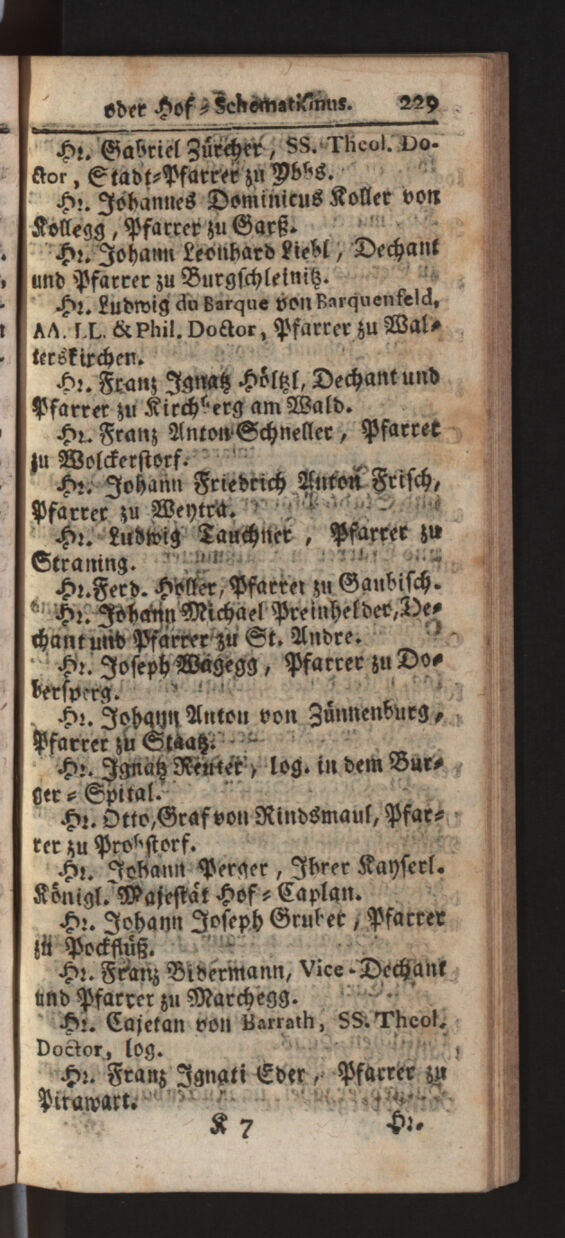 oder Hof-Schematismus. 229
Hr. Gabriel Zürcher, SS. Theol. Do-
ctor, Stadt-Pfarrer zu Ybbs.
Hr. Johannes Dominicus Koller von
Kollegg, Pfarrer zu Garß.
Hr. Johann Leonhard Liebl, Dechant
und Pfarrer zu Burgschleinitz.
Hr. Ludwig du Barque von Barquenfeld,
AA. LL. & Phil. Doctor, Pfarrer zu Wal-
terskirchen.
Hr. Franz Ignatz Höltzl, Dechant und
Pfarrer zu Kirchberg am Wald.
Hr. Franz Anton Schneller, Pfarrer
zu Wolckerstorf.
Hr. Johann Friedrich Anton Frisch,
Pfarrer zu Weytra.
Hr. Ludwig Tauchner, Pfarrer zu
Straning.
Hr. Ferd. Holler, Pfarrer zu Gaubisch.
Hr. Johann Michael Preinhelder, De-
chant und Pfarrer zu St. Andre.
Hr. Joseph Wägegg, Pfarrer zu Do-
bersperg.
Hr. Johann Anton von Zünnenburg,
Pfarrer zu Staatz.
Hr. Ignatz Reuter, log. in dem Bur-
ger-Spital.
Hr. Otto, Graf von Rindsmaul, Pfar-
rer zu Probstorf.
Hr. Johann Perger, Ihrer Kayserl.
Königl. Majestät Hof-Caplan.
Hr. Johann Joseph Gruber, Pfarrer
zu Pockflüß.
Hr. Franz Bidermann, Vice-Dechant
und Pfarrer zu Marchegg.
Hr. Cajetan von Barrath, SS. Theol.
Doctor, log.
Hr. Franz Ignati Eder, Pfarrer zu
Pirawart.
K 7 Hr.